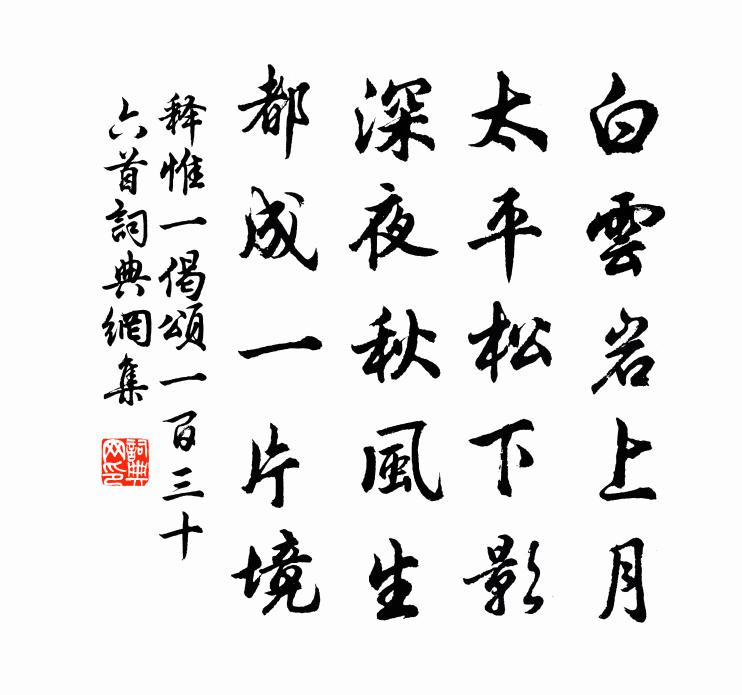 白雲岩上月
太平松下影
深夜秋風生
都成一片境
释惟一偈頌一百三十
六首詞典網集
詞典
网印